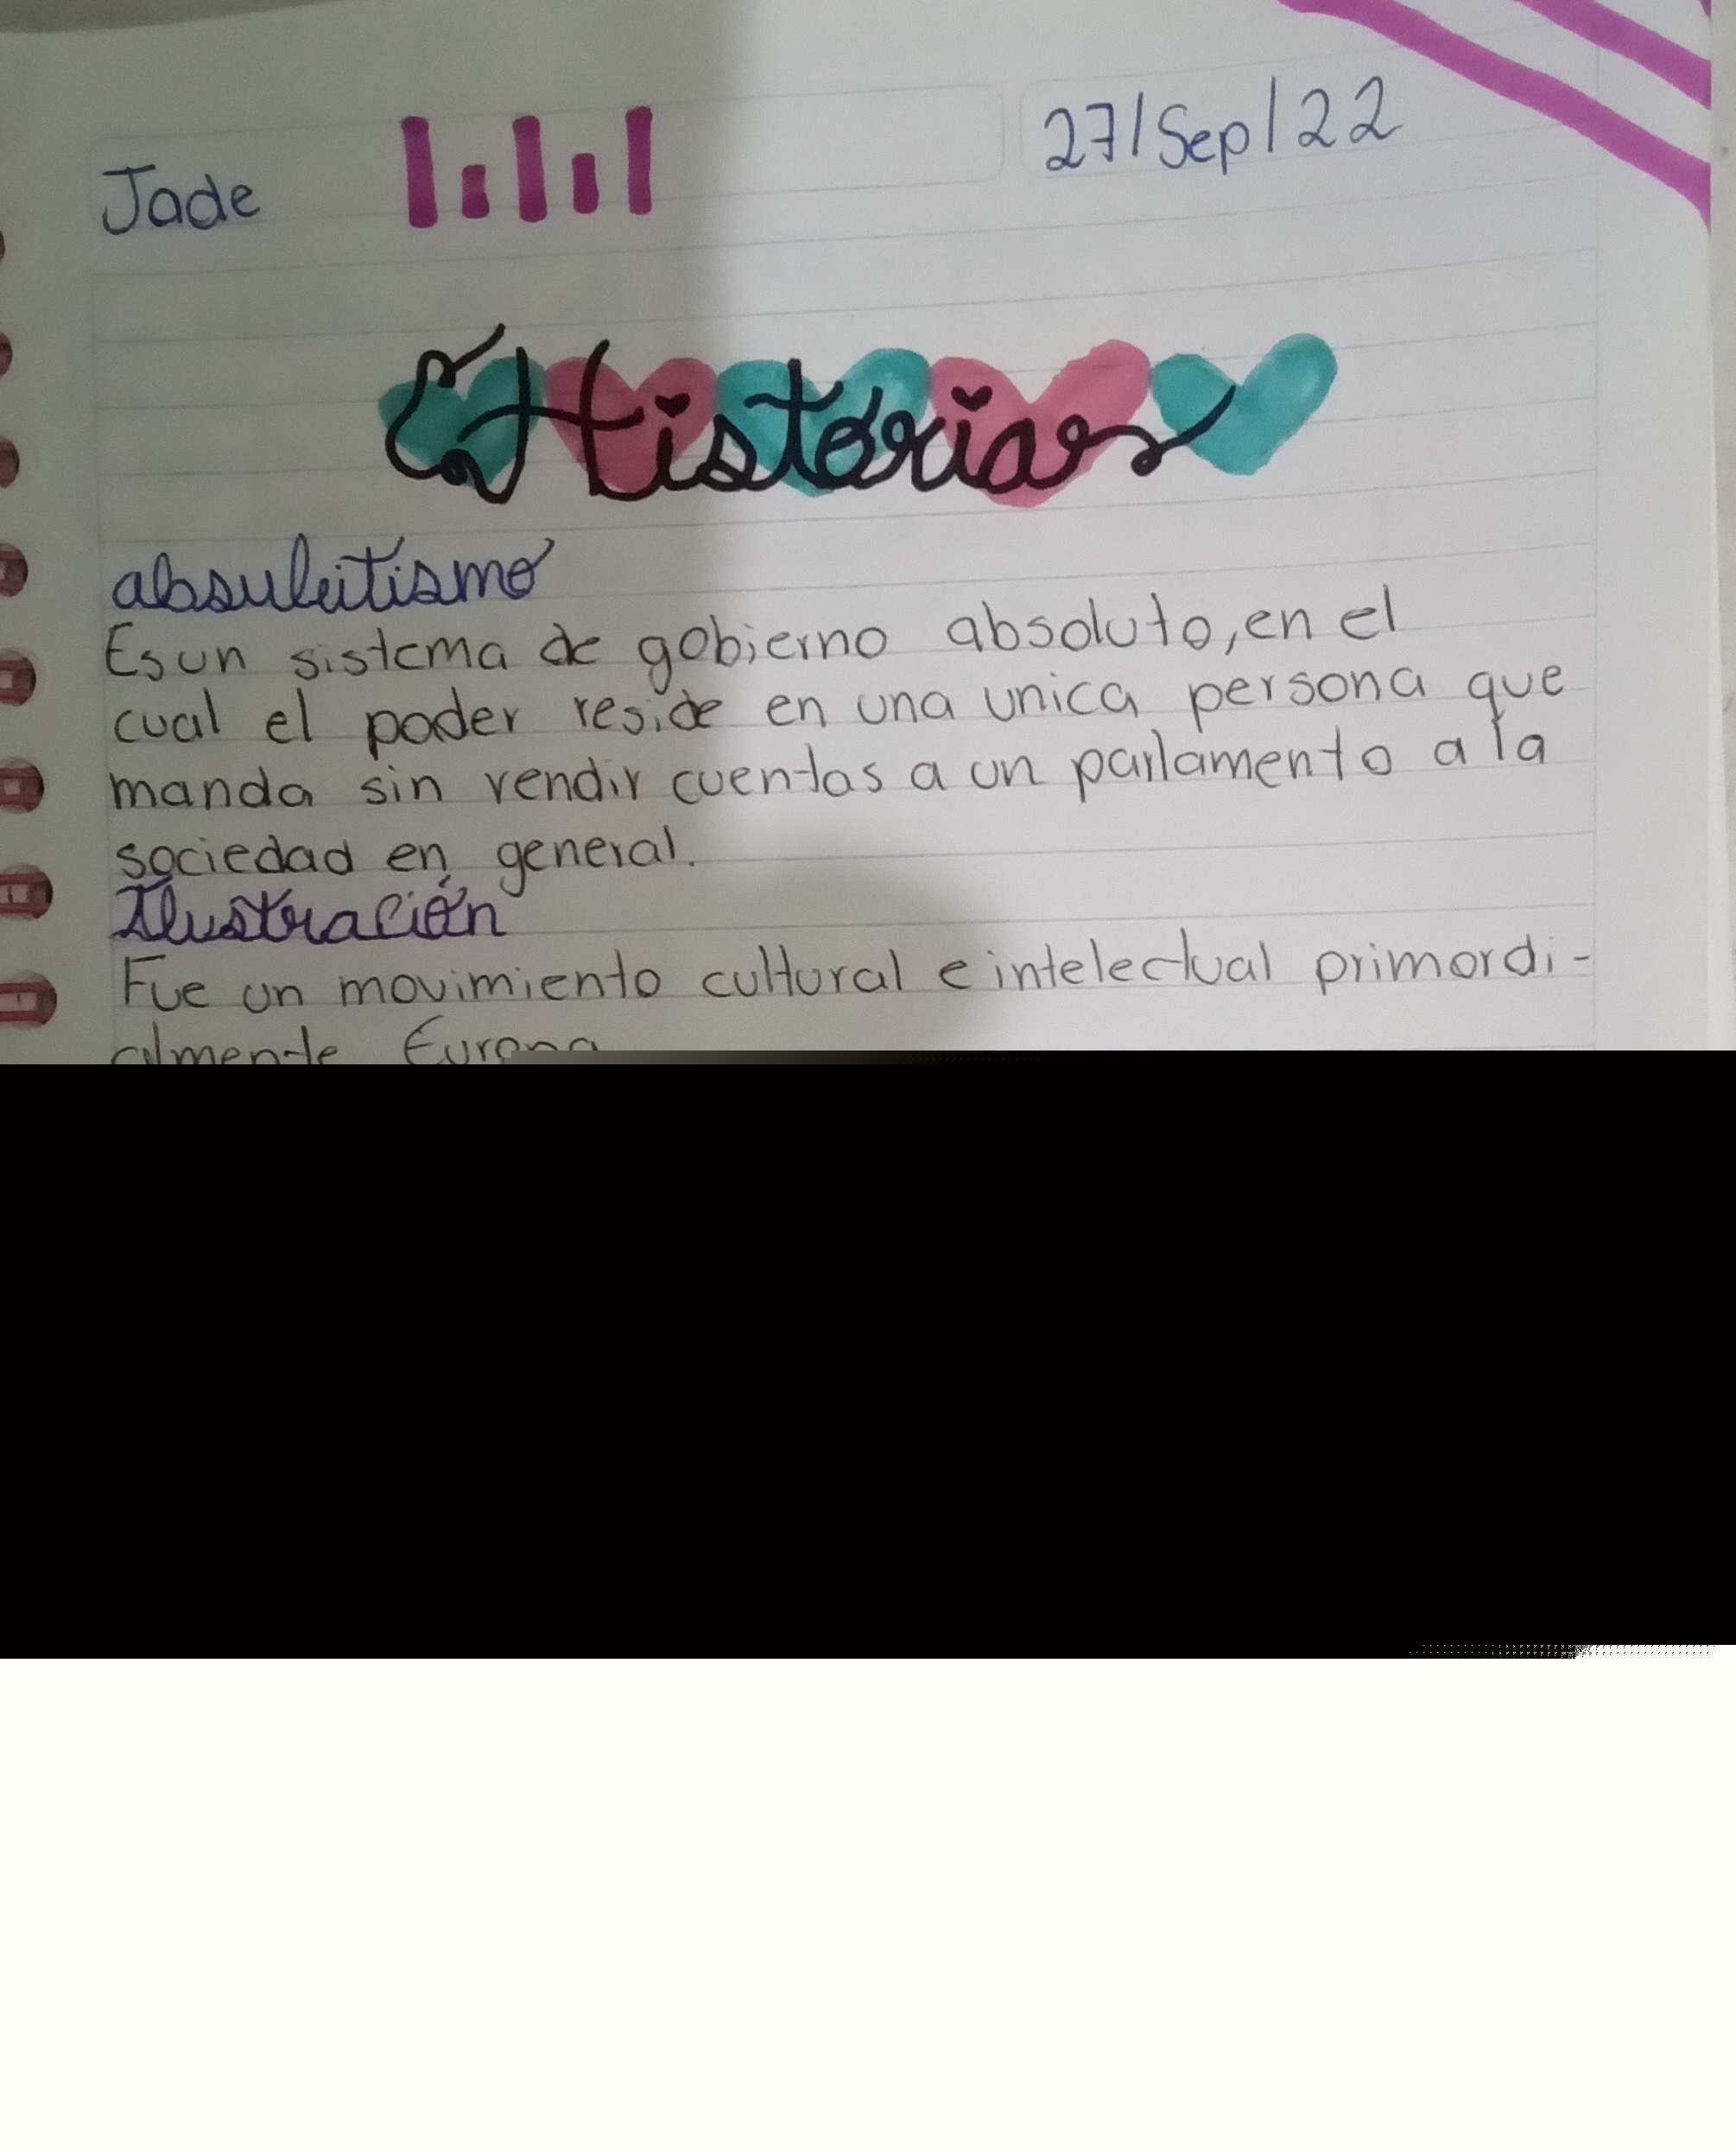 Jade
27/Sep/22
Historia
absulutismo
Es un sistema de gobierno absoluto, en el
cual el poder reside en una unica persona que
manda sin rendir cuentas a un parlamento a la
sociedad en general.
Ilustración
Fue un movimiento cultural e intelectual primordi-
almente Europa